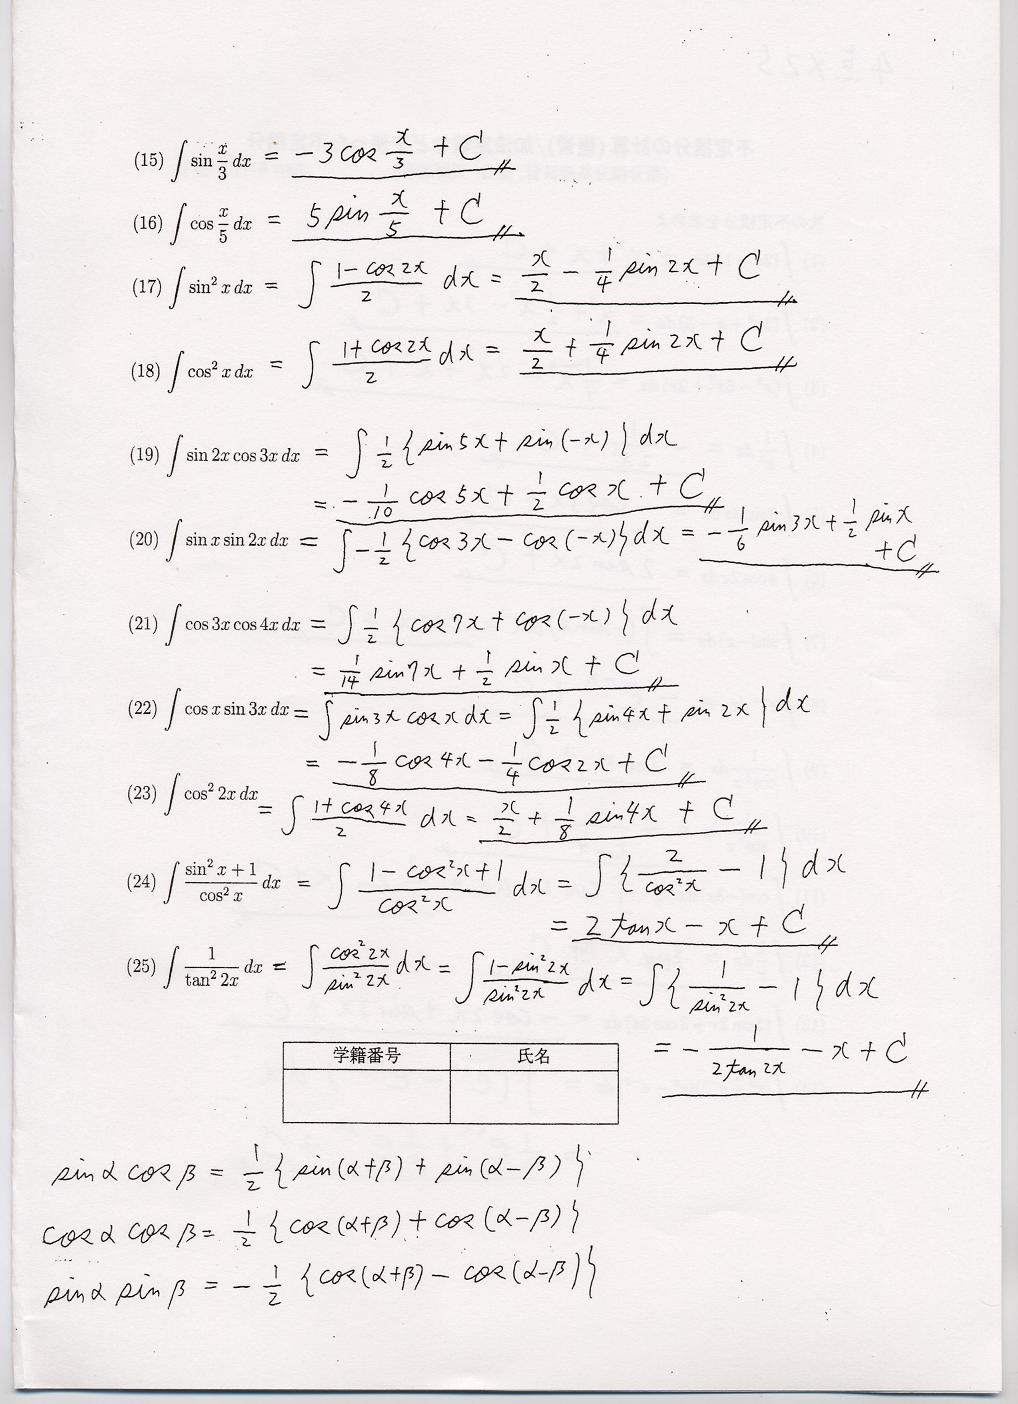 (15) ∫ sin x/3 dx = −3cos x/3 + C
(16) ∫ cos x/5 dx = 5sin x/5 + C
(17) ∫ sin² x dx = ∫ (1−cos2x)/2 dx = x/2 − 1/4 sin2x + C
(18) ∫ cos² x dx = ∫ (1+cos2x)/2 dx = x/2 + 1/4 sin2x + C
(19) ∫ sin 2x cos 3x dx = ∫ 1/2 {sin5x + sin(−x)} dx
= −1/10 cos5x + 1/2 cosx + C
(20) ∫ sin x sin 2x dx = ∫ −1/2 {cos3x − cos(−x)} dx = −1/6 sin3x + 1/2 sinx
+ C
(21) ∫ cos 3x cos 4x dx = ∫ 1/2 {cos7x + cos(−x)} dx
= 1/14 sin7x + 1/2 sinx + C
(22) ∫ cos x sin 3x dx = ∫ sin3x cosx dx = ∫ 1/2 {sin4x + sin2x} dx
= −1/8 cos4x − 1/4 cos2x + C
(23) ∫ cos² 2x dx = ∫ (1+cos4x)/2 dx = x/2 + 1/8 sin4x + C
(24) ∫ (sin² x + 1)/(cos² x) dx = ∫ (1−cos²x+1)/(cos²x) dx = ∫ {2/cos²x − 1} dx
= 2tanx − x + C
(25) ∫ 1/(tan² 2x) dx = ∫ (cos²2x)/(sin²2x) dx = ∫ (1−sin²2x)/(sin²2x) dx = ∫ {1/(sin²2x) − 1} dx
= −1/(2tan2x) − x + C
学籍番号 氏名
sinα cosβ = 1/2 {sin(α+β) + sin(α−β)}
cosα cosβ = 1/2 {cos(α+β) + cos(α−β)}
sinα sinβ = −1/2 {cos(α+β) − cos(α−β)}